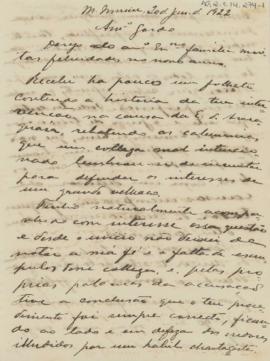 2 de jan. de 1922
Am.º Gordo
Desejo ao am.º Ex.ma familia mui-
tas felicidades no novo anno.
Recebi ha pouco um folheto
contendo a historia da tua inter
venção na causa da E. de Arara
quara, relatando as calumnias
que um collega mal intencio
nado de inventar
para defender os interesses de
um grande
Tenho naturalmente acompa-
nhado com interesse essa questão
e desde o inicio não deixei de
notar a má fé e a falta de escru
pulos collega, e, pelas pro
prias palavras da accusação
tive a conclusão que o teu proce
dimento foi sempre correcto, fican
do ao lado e em defeza dos credores
illudidos por um habil chantagista